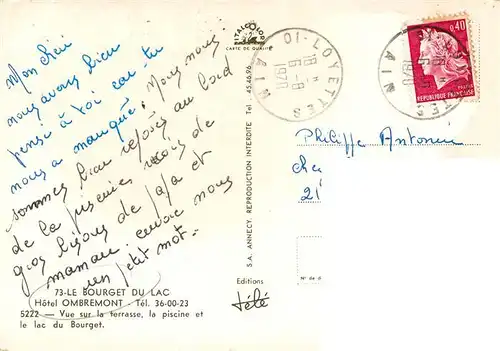 Mon chéri
nous avons bien
pensé à toi car tu
nous a manqué. Nous nous
sommes bien reposés au bord
de la piscine
gros bisous de papa et
maman. envoie nous
un petit mot.
73-LE BOURGET DU LAC
Hôtel OMBREMONT - Tél. 36-00-23
5222 — Vue sur la terrasse, la piscine et
le lac du Bourget.
VITALCOLOR
CARTE DE QUALITÉ
S.A. ANNECY REPRODUCTION INTERDITE Tel. 45.46.96
Editions
télé
01-LOYETTES
18 H
6-8
1970
AIN
0,40
REPUBLIQUE FRANÇAISE
POSTES
Philippe Antonin
Che
21
N° de d